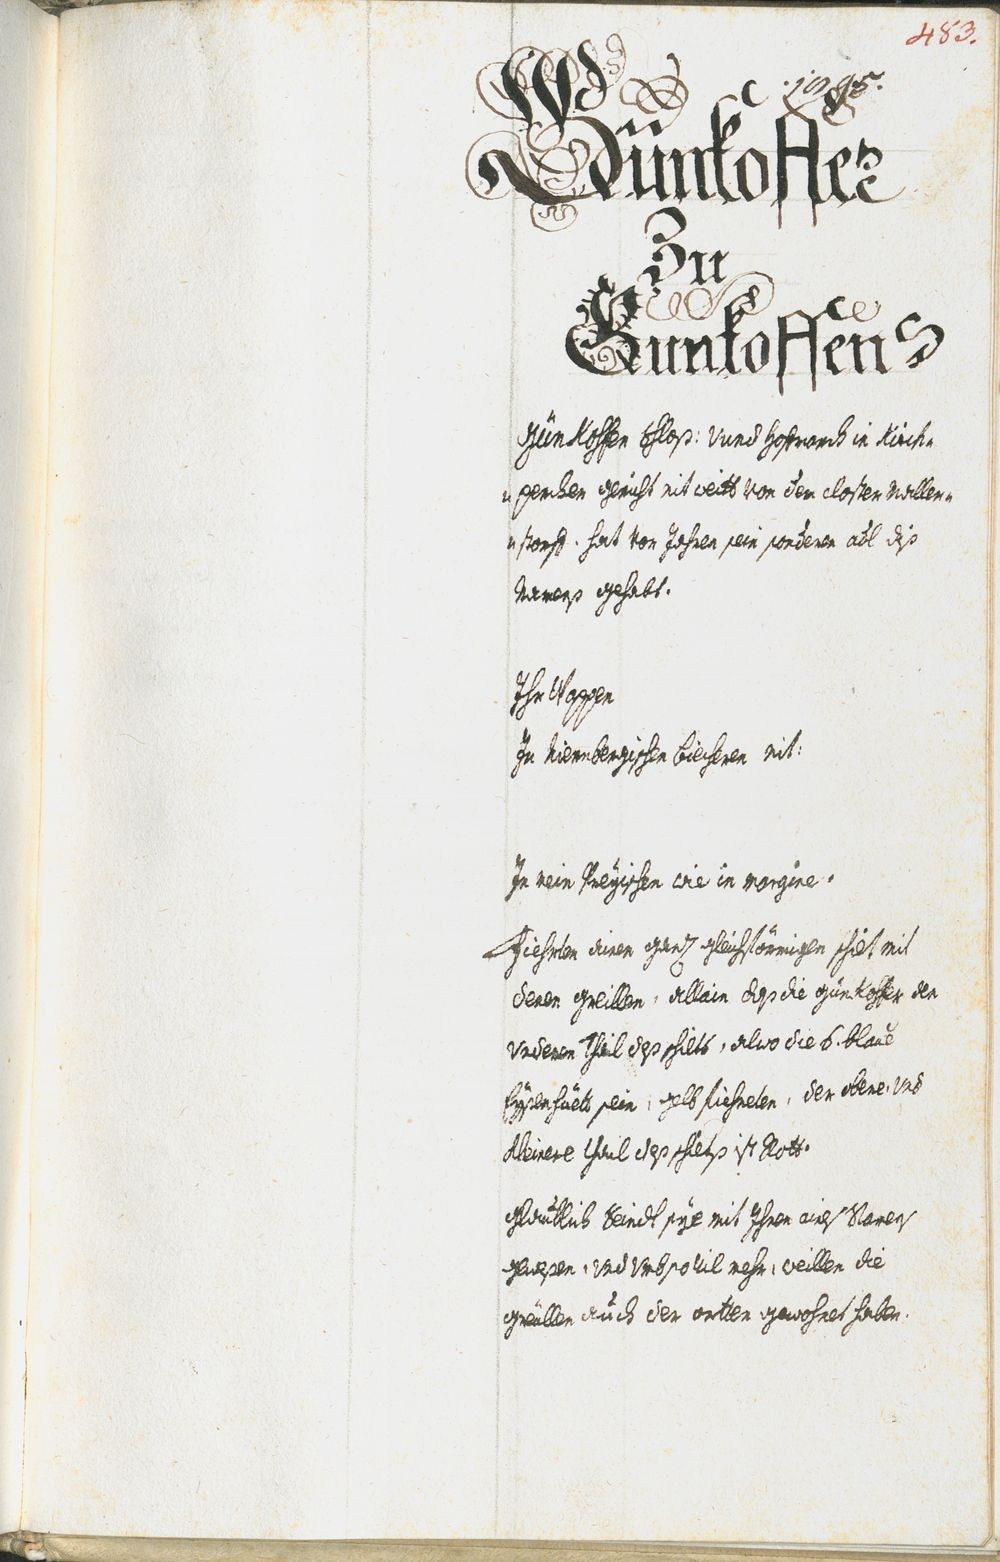 483.
1095.
Günkoffer
Zu
Gunkoffen
Günkoffen Schloß: Vnnd Hoffmarch in Kirch-
-perkher gericht nit weitt Von dem closter Maller-
-storff. hat Vor Jahren sein sonderen adl diß
Namenß gehabt.
Ihr Wappen
In Niernbergischen biecheren nit:
In mein Preÿischen wie in margine.
Fiehrten ainen ganz gleichförmigen schilt mit
denen greillen, allain daß die günkoffer den
Vnderen Thail deß schilts, alwo die 6. blaue
Eÿsenhüetl sein, gelb fiehreten, der obere, Vnd
kleinere thail deß schilts ist Rott.
glaublich seindt sÿe mit Ihnen aines Namens
gewesen, Vnd Vmb souil mehr, weillen die
greillen auch der ortten gewohnet haben.